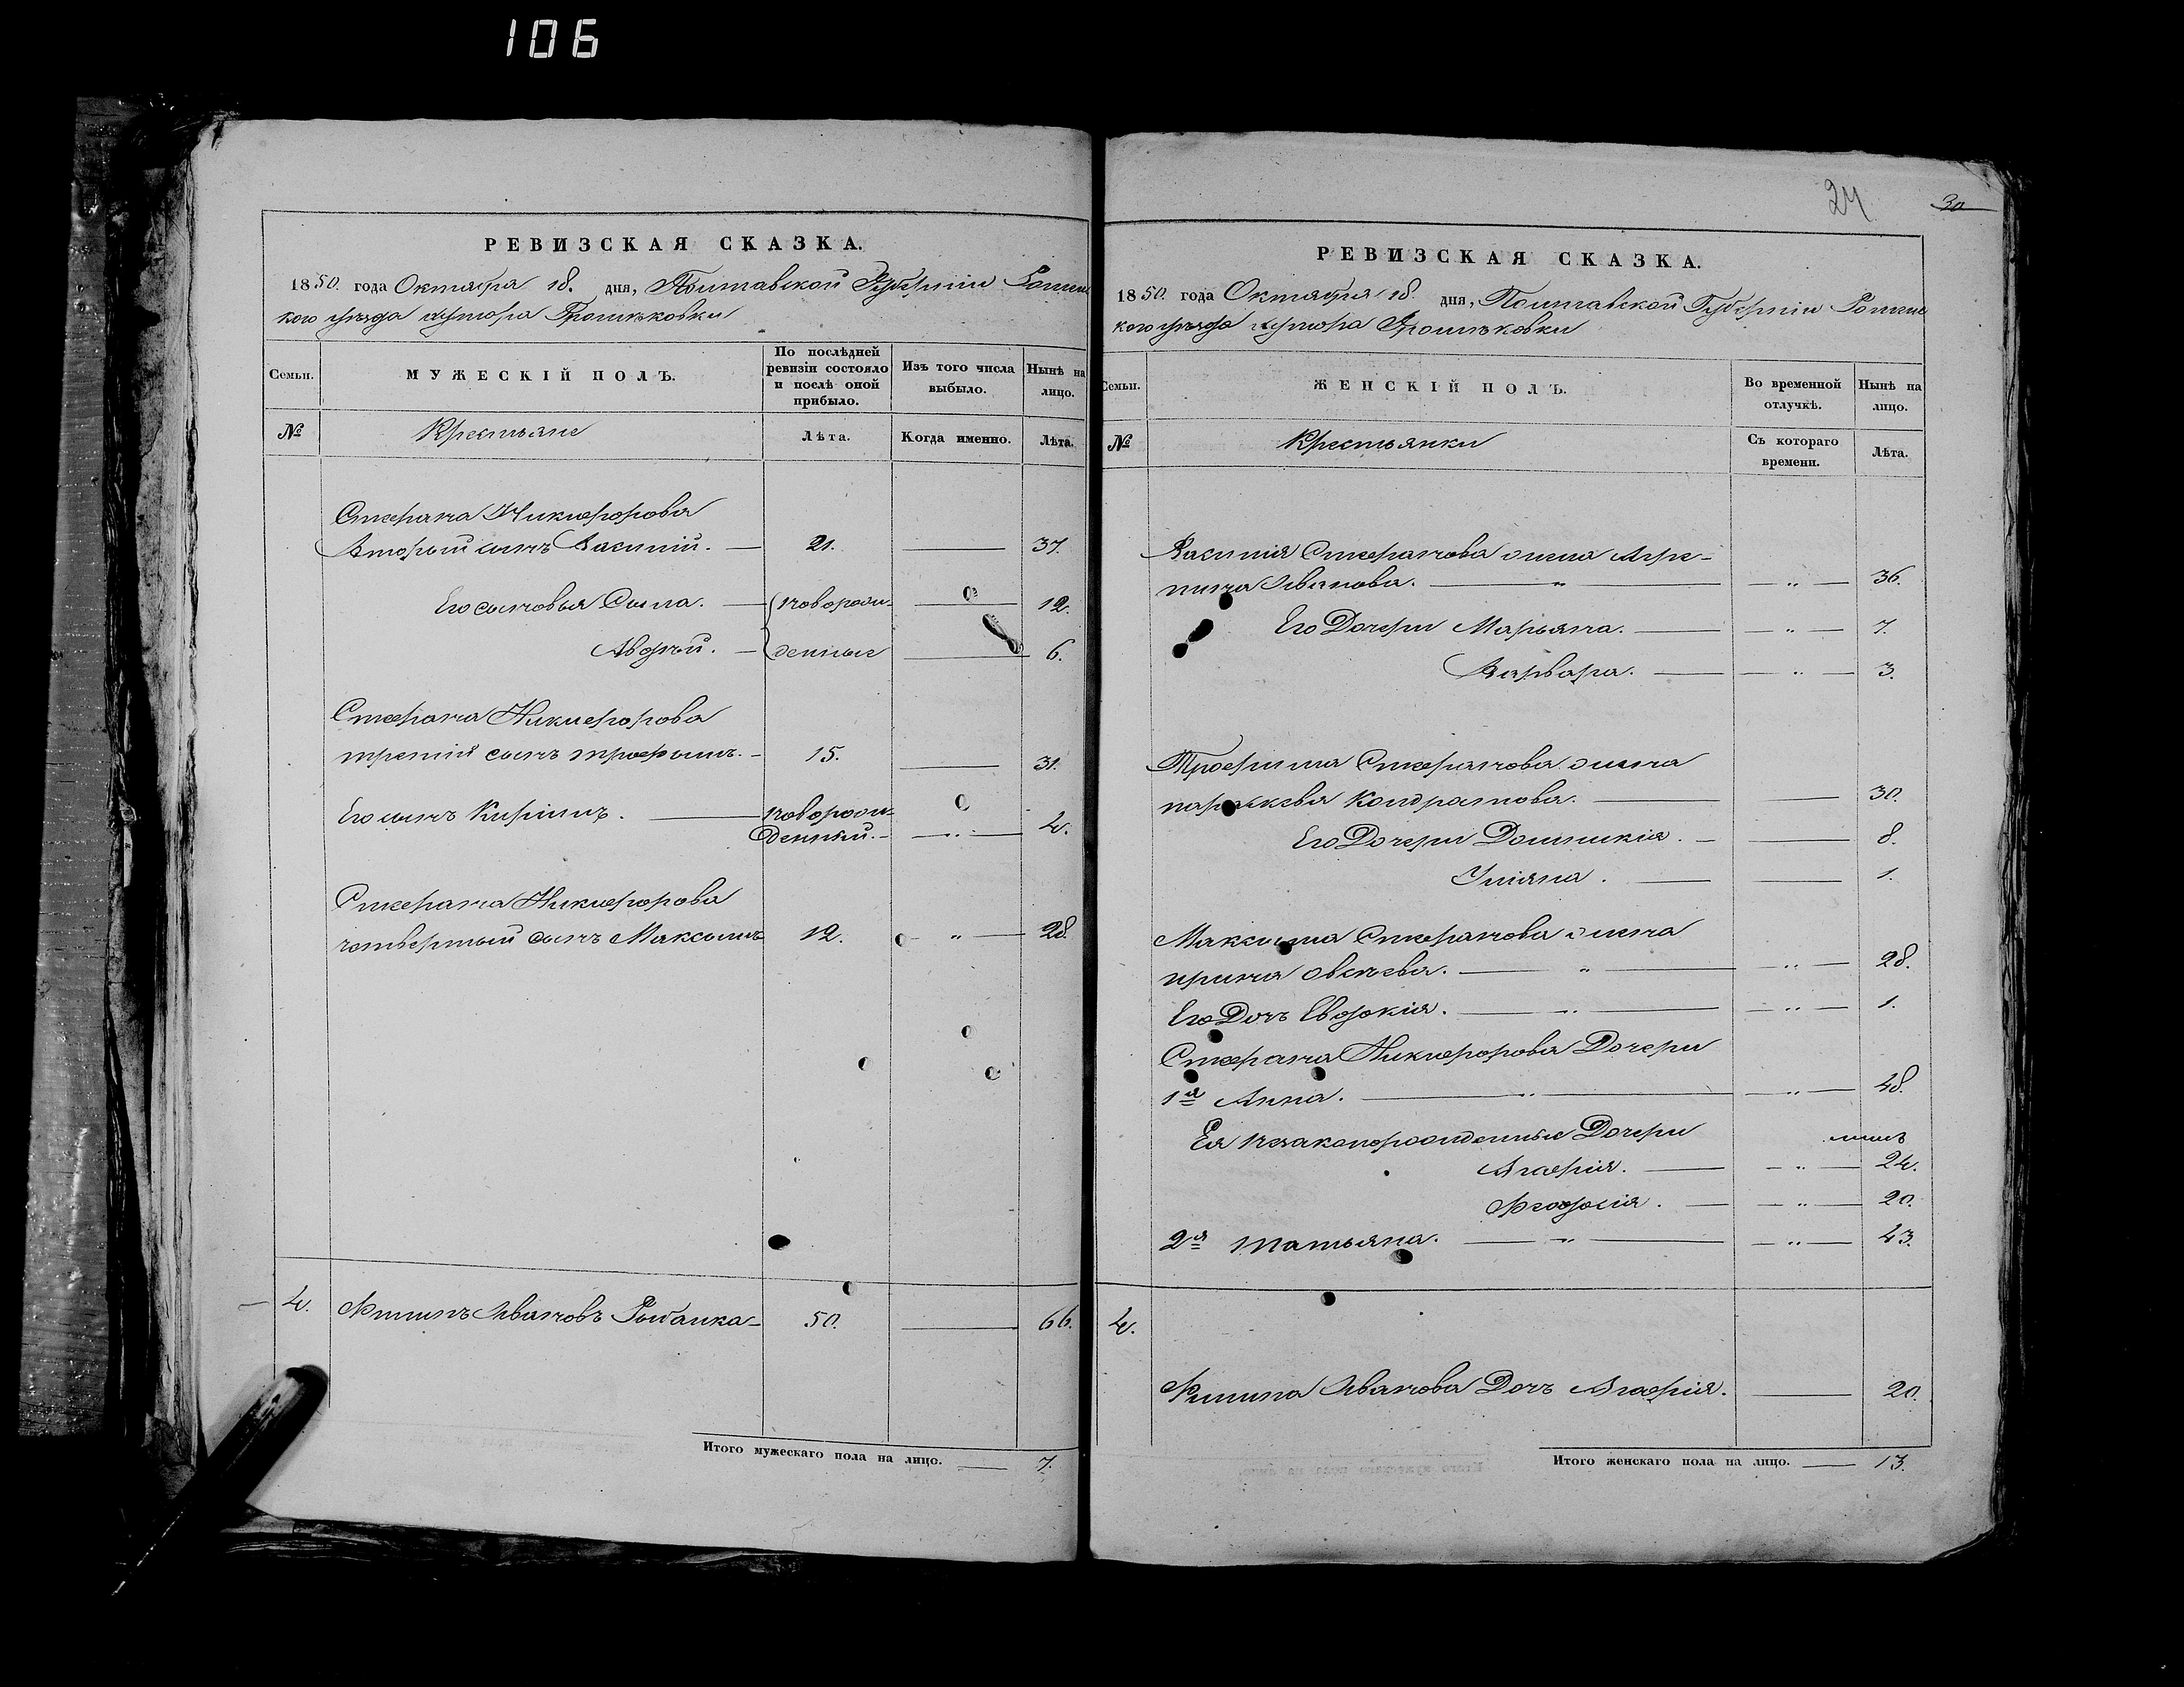 106
РЕВИЗСКАЯ СКАЗКА.
1850. года Октября 18. дня, Полтавской Губерніи Роменс
кого уѣзда хутора
Семьи.
МУЖЕСКІЙ ПОЛЪ.
По послѣдней ревизіи состояло и послѣ оной прибыло.
Изъ того числа выбыло.
Нынѣ на лицо.
№
Крестьяне
Лѣта.
Когда именно.
Лѣта.
Стефана Никифорова
Вторый сынъ Василій. — 21. — 37.
Его сыновья Сыла. — новорож- — 12.
Авдѣй. — денные — 6.
Стефана Никифорова
третій сынъ трофымъ. — 15. — 31.
Его сынъ Кирілъ. — новорож-
денный. — „ — 4.
Стефана Никифорова
четвертый сынъ Максымъ 12. — „ — 28.
4. Филипъ Ивановъ 50. — 66.
Итого мужескаго пола на лицо. — 7.
24
30
РЕВИЗСКАЯ СКАЗКА.
1850. года Октября 18 дня, Полтавской Губерніи Роменс
кого уѣзда хутора
Семьи.
ЖЕНСКІЙ ПОЛЪ.
Во временной отлучкѣ.
Нынѣ на лицо.
№
Крестьянки
Съ котораго времени.
Лѣта.
Василія Стефанова жена Агри-
пина Иванова. — „ — „ — 36.
Его Дочери Марьяна. — „ — 7.
Варвара. — „ — 3.
Трофима Стефанова жена
параскева Кондратова. — 30.
Его Дочери Домникія. — 8.
Уліяна. — 1.
Максима Стефанова жена
ирина — „ — „ — 28.
Его Дочь Евдокія. — „ — „ — 1.
Стефана Никифорова Дочери
1я Анна. — „ — „ — 48.
Ея незаконорожденные Дочери
Агафія. — „ — 24.
Феодосія. — „ — 20.
2я татьяна. — „ — „ — 43.
4.
Филипа Иванова Дочь Агафія. — 20.
Итого женскаго пола на лицо. — 13.